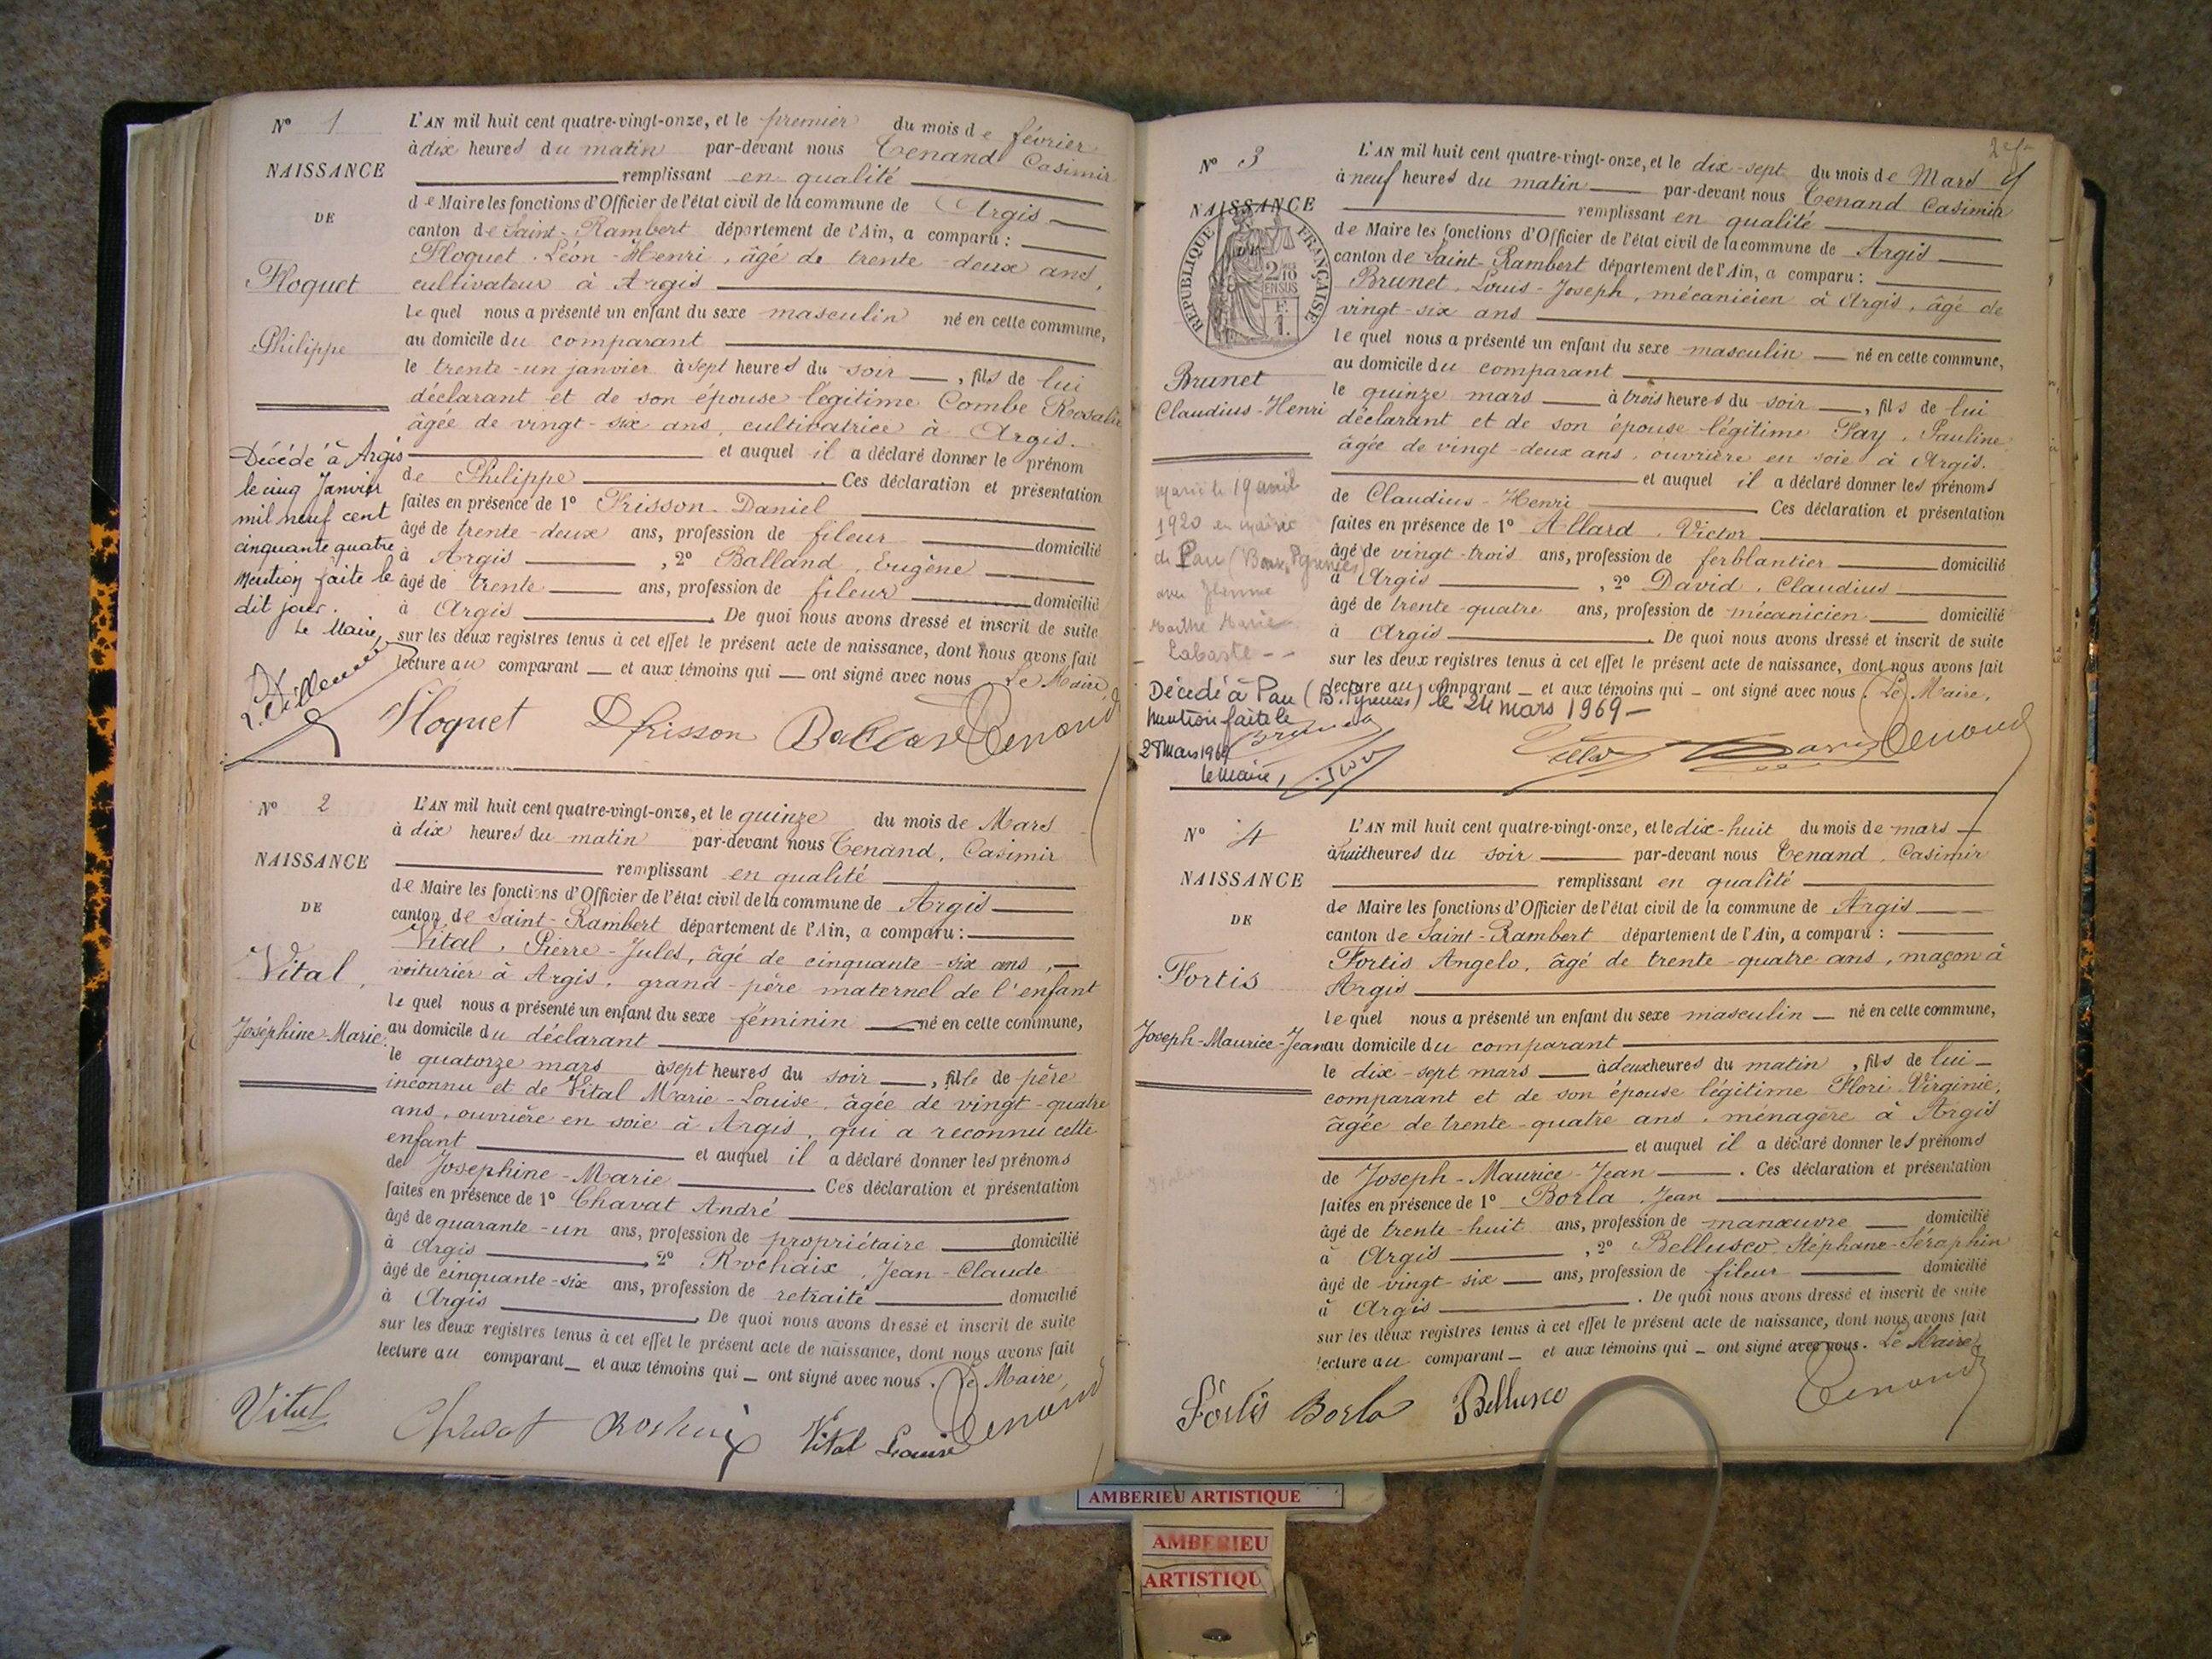 N° 1
NAISSANCE
DE
Floquet
Philippe
L'AN mil huit cent quatre-vingt-onze, et le premier du mois de février
à dix heures du matin par-devant nous Tenand Casimir
remplissant en qualité
de Maire les fonctions d'Officier de l'état civil de la commune de Argis
canton de Saint-Rambert département de l'Ain, a comparu :
Floquet, Léon-Henri, âgé de trente-deux ans,
cultivateur à Argis
lequel nous a présenté un enfant du sexe masculin né en cette commune,
au domicile du comparant
le trente-un janvier à sept heures du soir, fils de lui
déclarant et de son épouse légitime Combe Rosalie
âgée de vingt-six ans, cultivatrice à Argis.
et auquel il a déclaré donner le prénom
de Philippe. Ces déclaration et présentation
faites en présence de 1° Frisson Daniel
âgé de trente-deux ans, profession de fileur domicilié
à Argis, 2° Balland, Eugène
âgé de trente ans, profession de fileur domicilié
à Argis. De quoi nous avons dressé et inscrit de suite
sur les deux registres tenus à cet effet le présent acte de naissance, dont nous avons fait
lecture au comparant et aux témoins qui ont signé avec nous. Le Maire,
Décédé à Argis
le cinq Janvier
mil neuf cent
cinquante quatre
Mention faite le
dit jour.
Le Maire,
Floquet D frisson Balland Tenand
N° 2
NAISSANCE
DE
Vital,
Joséphine-Marie.
L'AN mil huit cent quatre-vingt-onze, et le quinze du mois de Mars
à dix heures du matin par-devant nous Tenand, Casimir
remplissant en qualité
de Maire les fonctions d'Officier de l'état civil de la commune de Argis
canton de Saint-Rambert département de l'Ain, a comparu :
Vital, Pierre-Jules, âgé de cinquante-six ans,
voiturier à Argis, grand-père maternel de l'enfant
lequel nous a présenté un enfant du sexe féminin né en cette commune,
au domicile du déclarant
le quatorze mars à sept heures du soir, fille de père
inconnu et de Vital Marie-Louise, âgée de vingt-quatre
ans, ouvrière en soie à Argis, qui a reconnu cette
enfant et auquel il a déclaré donner les prénoms
de Josephine-Marie. Ces déclaration et présentation
faites en présence de 1° Chavat André
âgé de quarante-un ans, profession de propriétaire domicilié
à Argis, 2° Rochaix, Jean-Claude
âgé de cinquante-six ans, profession de retraité domicilié
à Argis. De quoi nous avons dressé et inscrit de suite
sur les deux registres tenus à cet effet le présent acte de naissance, dont nous avons fait
lecture au comparant et aux témoins qui ont signé avec nous. Le Maire,
Vital Chavat Rochaix Vital Louise Tenand
N° 3
NAISSANCE
DE
RÉPUBLIQUE FRANÇAISE
2/10 EN SUS
F. 1.
Brunet
Claudius-Henri
L'AN mil huit cent quatre-vingt-onze, et le dix-sept du mois de Mars
à neuf heures du matin par-devant nous Tenand Casimir
remplissant en qualité
de Maire les fonctions d'Officier de l'état civil de la commune de Argis
canton de Saint-Rambert département de l'Ain, a comparu :
Brunet, Louis-Joseph, mécanicien à Argis, âgé de
vingt-six ans
lequel nous a présenté un enfant du sexe masculin né en cette commune,
au domicile du comparant
le quinze mars à trois heures du soir, fils de lui
déclarant et de son épouse légitime Fay, Pauline
âgée de vingt-deux ans, ouvrière en soie à Argis.
et auquel il a déclaré donner les prénoms
de Claudius-Henri. Ces déclaration et présentation
faites en présence de 1° Allard, Victor
âgé de vingt-trois ans, profession de ferblantier domicilié
à Argis, 2° David, Claudius
âgé de trente-quatre ans, profession de mécanicien domicilié
à Argis. De quoi nous avons dressé et inscrit de suite
sur les deux registres tenus à cet effet le présent acte de naissance, dont nous avons fait
lecture au comparant et aux témoins qui ont signé avec nous. Le Maire,
Marié le 19 avril
1920 en mairie
de Pau (Bas. Pyrénées)
avec
Marthe Marie
Labaste
Décédé à Pau (B. Pyrenées) le 24 mars 1969
Mention faite le
28 Mars 1969
le Maire,
Brunet Tenand
N° 4
NAISSANCE
DE
Fortis
Joseph-Maurice-Jean
L'AN mil huit cent quatre-vingt-onze, et le dix-huit du mois de mars
à huit heures du soir par-devant nous Tenand, Casimir
remplissant en qualité
de Maire les fonctions d'Officier de l'état civil de la commune de Argis
canton de Saint-Rambert département de l'Ain, a comparu :
Fortis Angelo, âgé de trente-quatre ans, maçon à
Argis
lequel nous a présenté un enfant du sexe masculin né en cette commune,
au domicile du comparant
le dix-sept mars à deux heures du matin, fils de lui
comparant et de son épouse légitime Flori Virginie,
âgée de trente-quatre ans, ménagère à Argis
et auquel il a déclaré donner les prénoms
de Joseph-Maurice-Jean. Ces déclaration et présentation
faites en présence de 1° Borla, Jean
âgé de trente-huit ans, profession de manœuvre domicilié
à Argis, 2° Bellusco, Stéphane-Séraphin
âgé de vingt-six ans, profession de fileur domicilié
à Argis. De quoi nous avons dressé et inscrit de suite
sur les deux registres tenus à cet effet le présent acte de naissance, dont nous avons fait
lecture au comparant et aux témoins qui ont signé avec nous. Le Maire,
Fortis Borla Bellusco Tenand
AMBERIEU ARTISTIQUE
AMBERIEU
ARTISTIQU